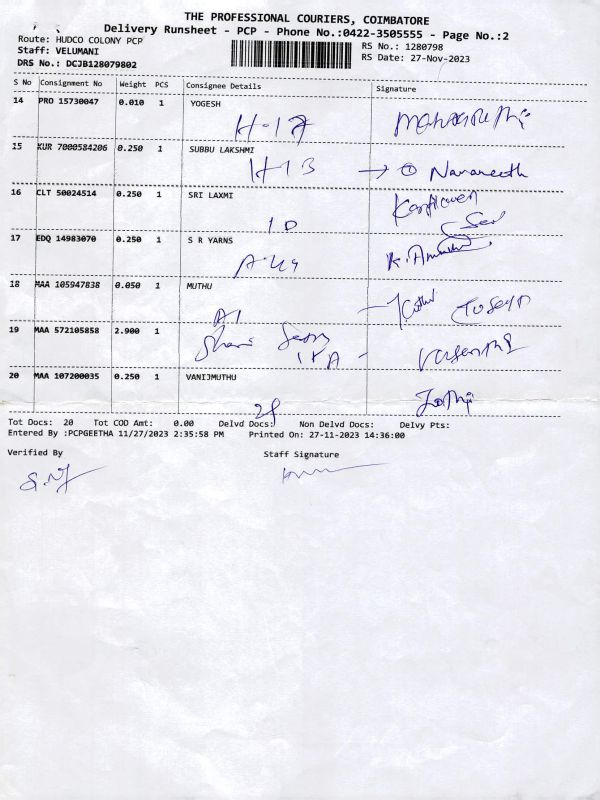 THE PROFESSIONAL COURIERS, COIMBATORE
Delivery Runsheet - PCP - Phone No.:0422-3505555 - Page No.:2
Route: HUDCO COLONY PCP
RS No.: 1280798
Staff: VELUMANI
RS Date: 27-Nov-2023
DRS No.: DCJB128079802
S No Consignment No Weight PCS Consignee Details Signature
14 PRO 15730047 0.010 1 YOGESH
H-17
15 KUR 7000584206 0.250 1 SUBBU LAKSHMI
H-13 → Navaneeth
16 CLT 50024514 0.250 1 SRI LAXMI
1D
17 EDQ 14983070 0.250 1 S R YARNS
A-49
18 MAA 105947838 0.050 1 MUTHU
A1
19 MAA 572105858 2.900 1
20 MAA 107200035 0.250 1 VANIJMUTHU
Jothi
Tot Docs: 20 Tot COD Amt: 0.00 Delvd Docs: Non Delvd Docs: Delvy Pts:
Entered By :PCPGEETHA 11/27/2023 2:35:58 PM Printed On: 27-11-2023 14:36:00
Verified By Staff Signature